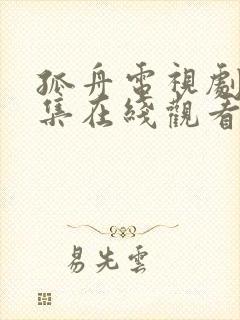 孤舟電視劇
集在綫觀看
易先雲